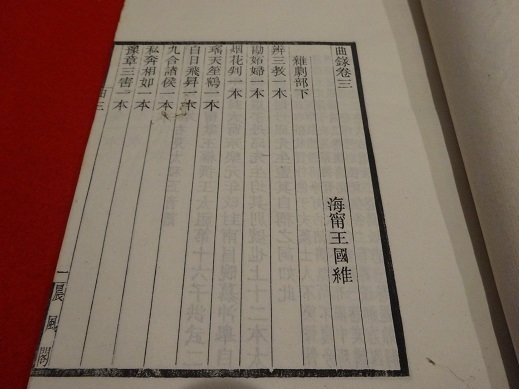 曲錄卷三
海甯王國維
雜劇部下
辨三教一本
勘妬婦一本
烟花判一本
瑤天笙鶴一本
白日飛昇一本
九合諸侯一本
私奔相如一本
豫章三害一本
三
一
晨風閣